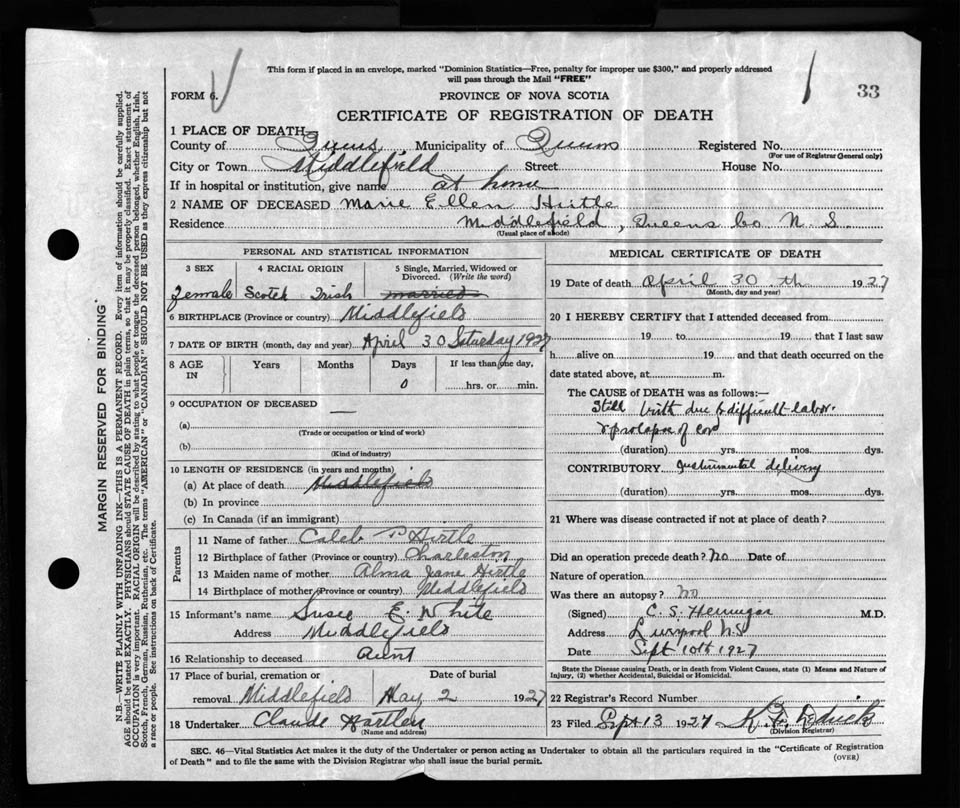 This form if placed in an envelope, marked "Dominion Statistics—Free, penalty for improper use $300," and properly addressed
will pass through the Mail "FREE"
33
FORM 6.
PROVINCE OF NOVA SCOTIA
CERTIFICATE OF REGISTRATION OF DEATH
1 PLACE OF DEATH
County of Queens Municipality of Queens Registered No.
(For use of Registrar General only)
City or Town Middlefield Street House No.
If in hospital or institution, give name at home
2 NAME OF DECEASED Marie Ellen Hirtle
Residence Middlefield, Queens Co N. S.
(Usual place of abode)
PERSONAL AND STATISTICAL INFORMATION
3 SEX 4 RACIAL ORIGIN 5 Single, Married, Widowed or
Divorced. (Write the word)
Female Scotch Irish married
6 BIRTHPLACE (Province or country) Middlefield
7 DATE OF BIRTH (month, day and year) April 30 Saturday 1927
8 AGE IN Years Months Days If less than one day,
0 hrs. or min.
9 OCCUPATION OF DECEASED —
(a)
(Trade or occupation or kind of work)
(b)
(Kind of industry)
10 LENGTH OF RESIDENCE (in years and months)
(a) At place of death Middlefield
(b) In province
(c) In Canada (if an immigrant)
Parents
11 Name of father Caleb P Hirtle
12 Birthplace of father (Province or country) Charleston
13 Maiden name of mother Alma Jane Hirtle
14 Birthplace of mother (Province or country) Middlefield
15 Informant's name Susie E. White
Address Middlefield
16 Relationship to deceased Aunt
17 Place of burial, cremation or Date of burial
removal Middlefield May 2 1927
18 Undertaker Claude Hartlen
(Name and address)
MEDICAL CERTIFICATE OF DEATH
19 Date of death April 30 th 1927
(Month, day and year)
20 I HEREBY CERTIFY that I attended deceased from
19 to 19 that I last saw
h alive on 19 and that death occurred on the
date stated above, at m.
The CAUSE OF DEATH was as follows:—
Still birth due to difficult labor.
& prolapse of cord
(duration) yrs. mos. ds.
CONTRIBUTORY Instrumental delivery
(duration) yrs. mos. ds.
21 Where was disease contracted if not at place of death?
Did an operation precede death? No Date of
Nature of operation
Was there an autopsy? No
(Signed) C. S. Hennigar M.D.
Address Liverpool N.S
Date Sept 10th 1927
State the Disease causing Death, or in death from Violent Causes, state (1) Means and Nature of
Injury, (2) whether Accidental, Suicidal or Homicidal.
22 Registrar's Record Number
23 Filed Sept 13 1927
(Division Registrar)
SEC. 46—Vital Statistics Act makes it the duty of the Undertaker or person acting as Undertaker to obtain all the particulars required in the "Certificate of Registration
of Death" and to file the same with the Division Registrar who shall issue the burial permit.
(OVER)
MARGIN RESERVED FOR BINDING
N.B.—WRITE PLAINLY WITH UNFADING INK—THIS IS A PERMANENT RECORD. Every item of information should be carefully supplied.
AGE should be stated EXACTLY. PHYSICIANS should STATE CAUSE OF DEATH in plain terms, so that it may be properly classified. Exact statement of
OCCUPATION is very important. RACIAL ORIGIN will be described by stating to what people or tongue the deceased person belonged, whether English, Irish,
Scotch, French, German, Russian, Ruthenian, etc. The terms "AMERICAN" or "CANADIAN" SHOULD NOT BE USED as they express citizenship but not
a race or people. See instructions on back of Certificate.